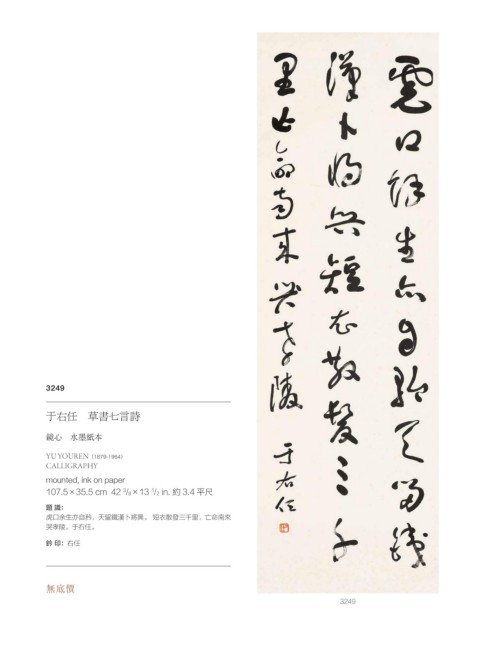 虎口餘生亦自矜天留鐵
漢卜將興短衣散髮三千
里亡命南來哭孝陵
于右任
右任
3249
3249
于右任 草書七言詩
鏡心 水墨紙本
YU YOUREN (1879-1964)
CALLIGRAPHY
mounted, ink on paper
107.5×35.5 cm 42 3/8×13 1/2 in. 約 3.4 平尺
題識:
虎口余生亦自矜,天留鐵漢卜將興。短衣散發三千里,亡命南來
哭孝陵。于右任。
鈐印:右任
無底價